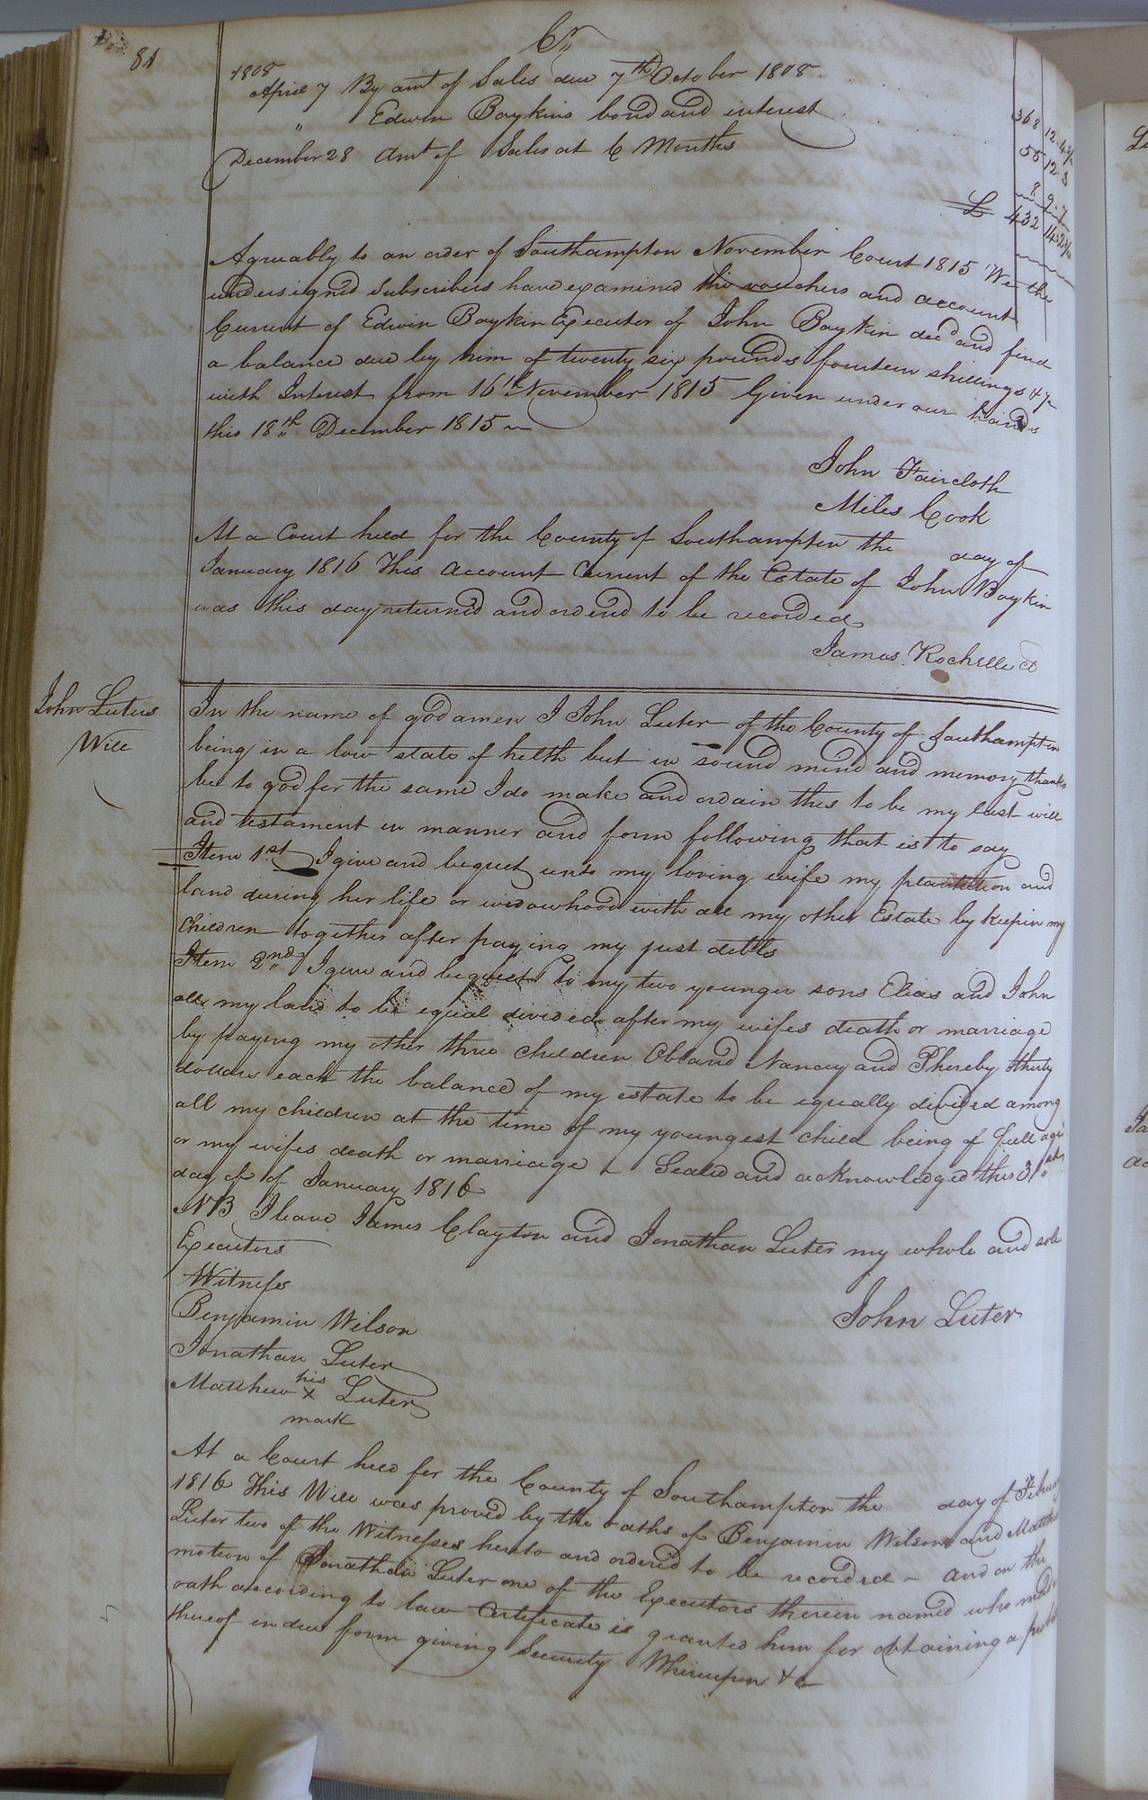 81
Cr
1808
April 7 By amt of Sales due 7th October 1808
368 12 4½
" Edwin Boykins bond and interest
55 12 3
December 28 Amt of Sales at 6 Months
8 9 7
£ 432 14 2½
Agreuably to an order of Southampton November Court 1815 We the
undersigned Subscribers have examined the vouchers and account
Current of Edwin Boykin Executor of John Boykin decd and find
a balance due by him of twenty six pounds fourteen shillings &
with Interest from 16th November 1815 Given under our hands
this 18th December 1815
John Faircloth
Miles Cook
At a Court held for the County of Southampton the day of
January 1816 This Account Current of the Estate of John Boykin
was this day returned and ordered to be recorded
James Rochelle C
John Luters
Will
In the name of god amen I John Luter of the County of Southampton
being in a low state of helth but in sound mind and memory thanks
be to god for the same I do make and ordain this to be my last will
and testament in manner and form following that is to say
Item 1st I give and bequet unto my loving wife my plantation and
land during her life or widowhood with all my other Estate by keepin my
Children together after paying my just debts
Item 2nd I give and bequest to my two younger sons Elias and John
all my land to be equal divided after my wifes death or marriage
by payeng my other three children Obland Nancy and Phereby thirty
dollars each the balance of my estate to be equally divided among
all my children at the time of my youngest child being of full age
or my wifes death or marriage Sealed and acknowledged this 31st
day of of January 1816
NB I leave James Clayton and Jonathan Luter my whole and sole
Executors
Witness
John Luter
Benjamin Wilson
Jonathan Luter
Matthew his x Luter
mark
At a Court held for the County of Southampton the day of February
1816 This Will was proved by the oaths of Benjamin Wilson and Matthew
Luter two of the Witnesses hereto and ordered to be recorded – and on the
motion of Jonathan Luter one of the Executors therein named who made
oath according to law Certificate is granted him for obtaining a probat
thereof in due form giving Security Whereupon &c